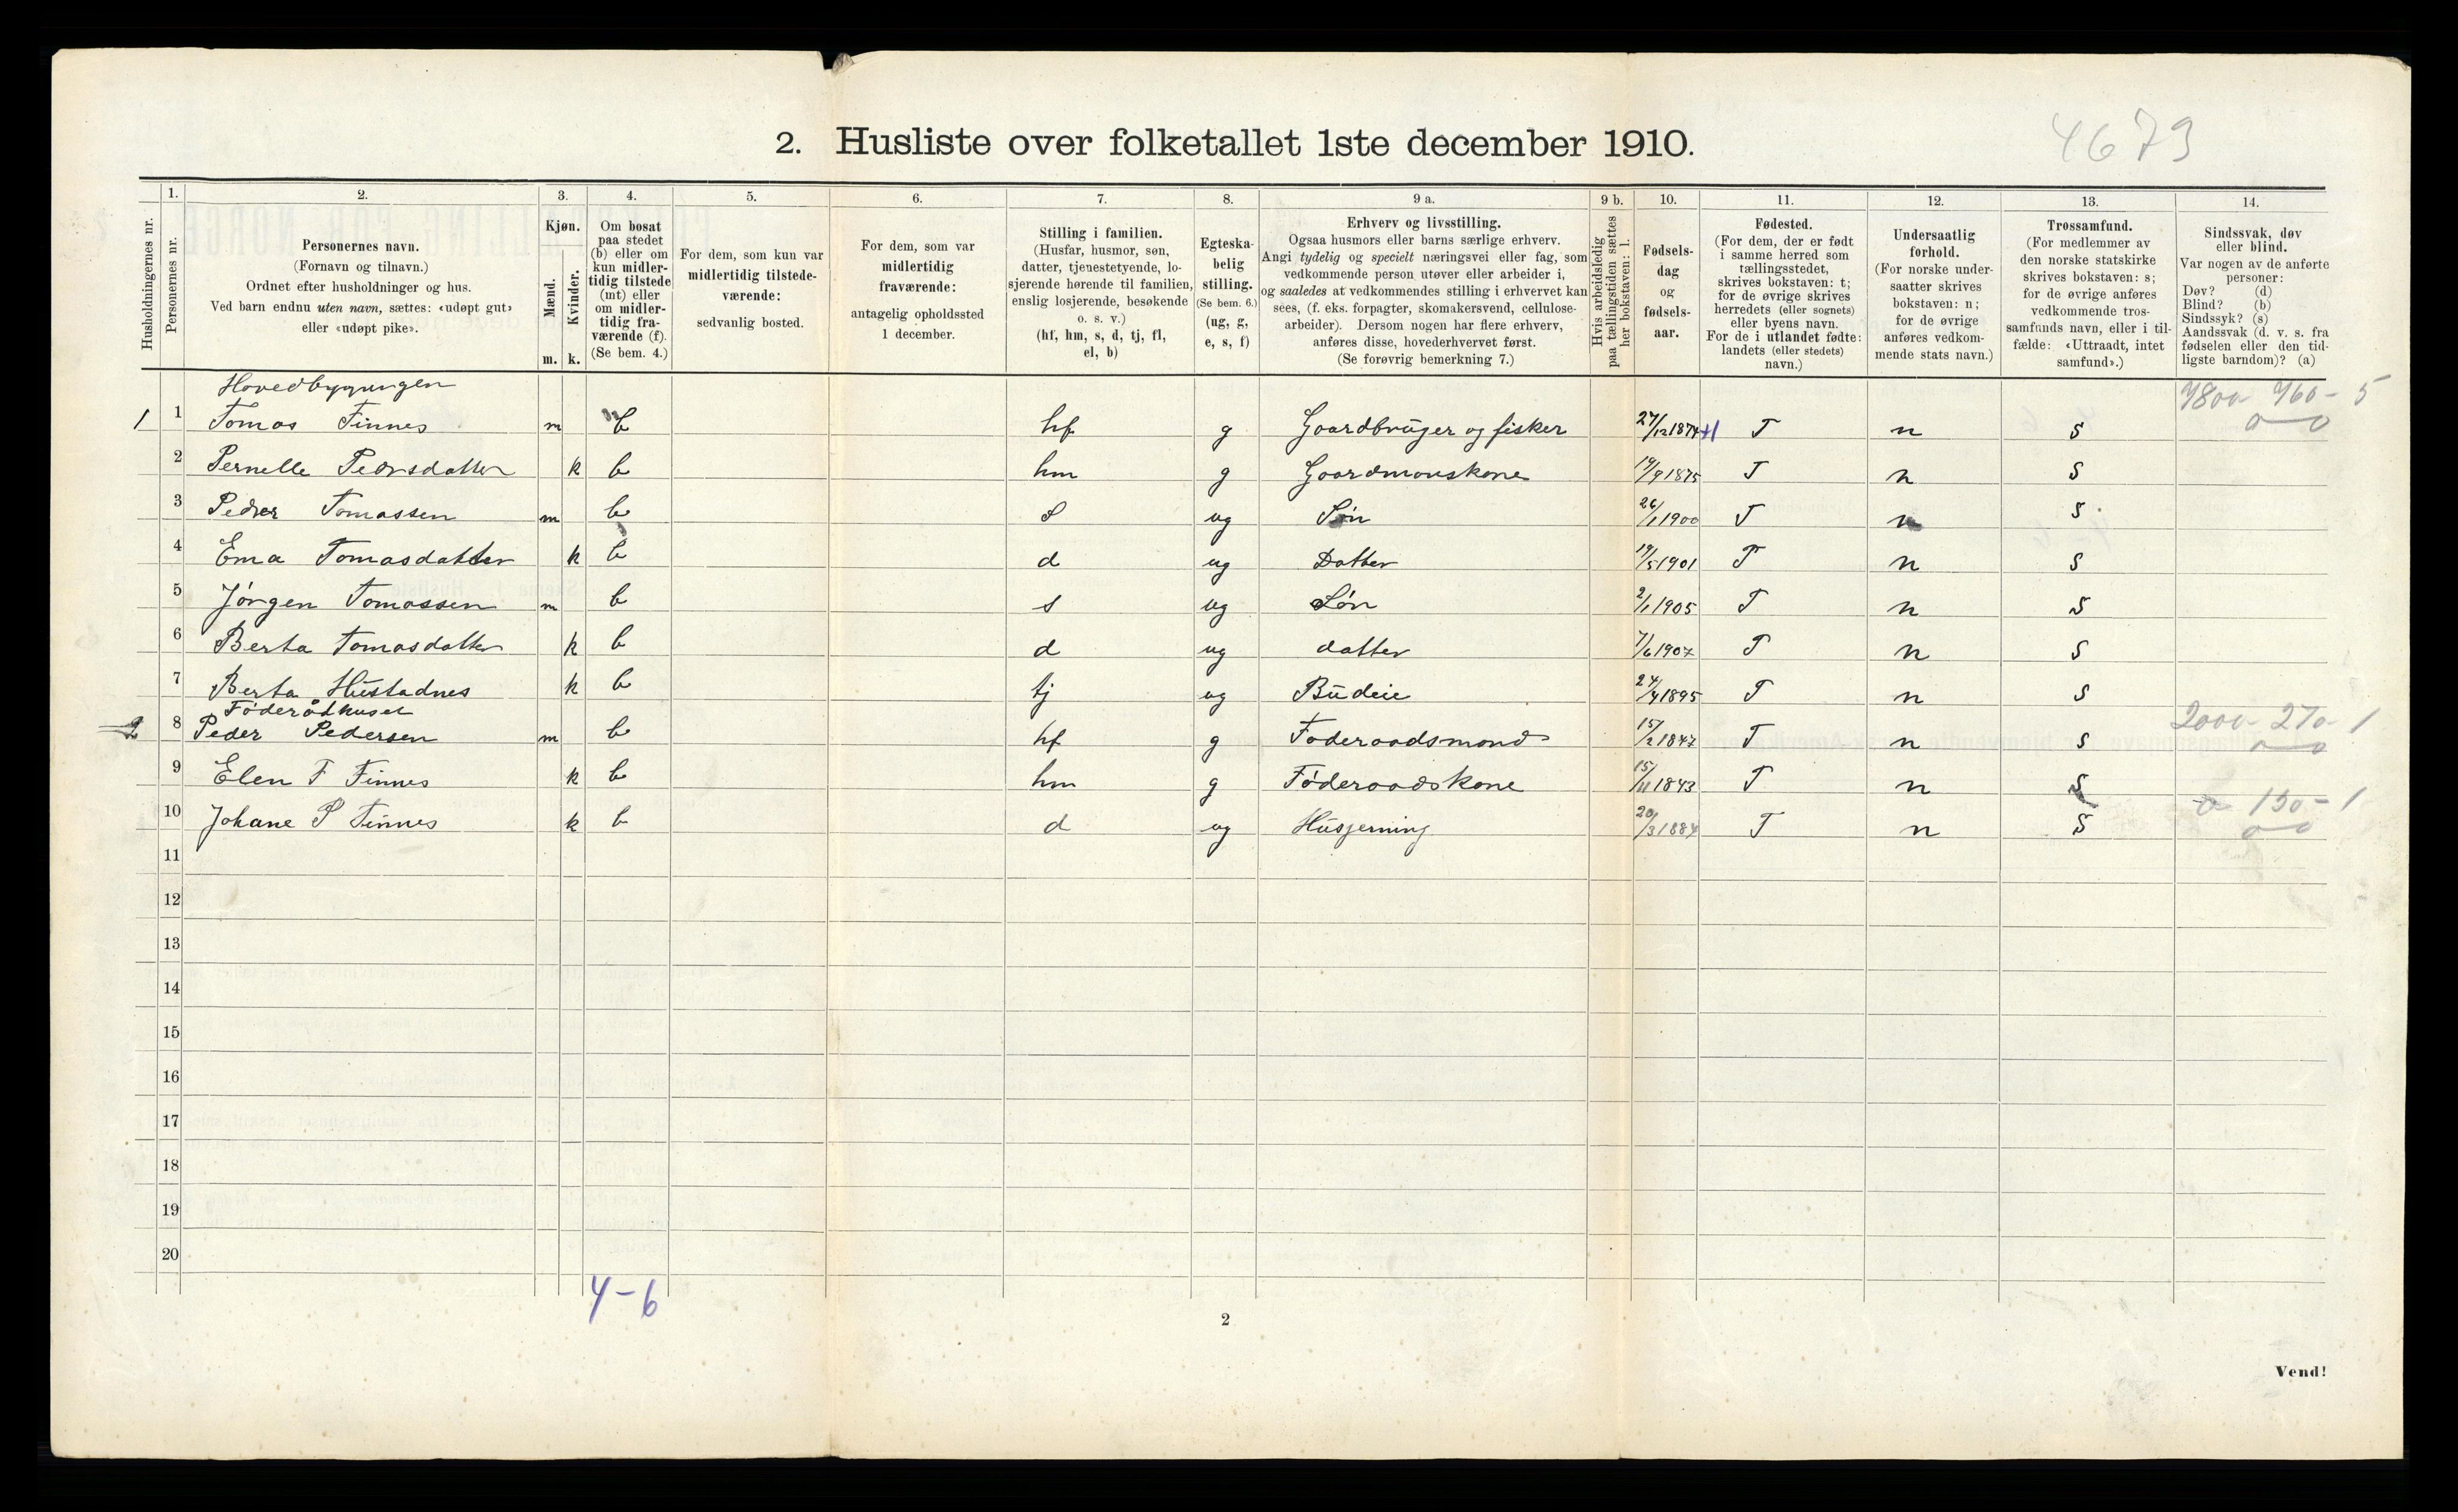 4673
2. Husliste over folketallet 1ste december 1910.
Husholdningernes nr.
1.
Personernes nr.
2.
Personernes navn.
(Fornavn og tilnavn.)
Ordnet efter husholdninger og hus.
Ved barn endnu uten navn, sættes: «udøpt gut»
eller «udøpt pike».
3.
Kjøn.
Mænd.
Kvinder.
m. k.
4.
Om bosat
paa stedet
(b) eller om
kun midler-
tidig tilstede
(mt) eller
om midler-
tidig fra-
værende (f).
(Se bem. 4.)
5.
For dem, som kun var
midlertidig tilstede-
værende:
sedvanlig bosted.
6.
For dem, som var
midlertidig
fraværende:
antagelig opholdssted
1 december.
7.
Stilling i familien.
(Husfar, husmor, søn,
datter, tjenestetyende, lo-
sjerende hørende til familien,
enslig losjerende, besøkende
o. s. v.)
(hf, hm, s, d, tj, fl,
el, b)
8.
Egteska-
belig
stilling.
(Se bem. 6.)
(ug, g,
e, s, f)
9 a.
Erhverv og livsstilling.
Ogsaa husmors eller barns særlige erhverv.
Angi tydelig og specielt næringsvei eller fag, som
vedkommende person utøver eller arbeider i,
og saaledes at vedkommendes stilling i erhvervet kan
sees, (f. eks. forpagter, skomakersvend, cellulose-
arbeider). Dersom nogen har flere erhverv,
anføres disse, hovederhvervet først.
(Se forøvrig bemerkning 7.)
9 b.
Hvis arbeidsledig
paa tællingstiden sættes
her bokstaven: l.
10.
Fødsels-
dag
og
fødsels-
aar.
11.
Fødested.
(For dem, der er født
i samme herred som
tællingsstedet,
skrives bokstaven: t;
for de øvrige skrives
herredets (eller sognets)
eller byens navn.
For de i utlandet fødte:
landets (eller stedets)
navn.)
12.
Undersaatlig
forhold.
(For norske under-
saatter skrives
bokstaven: n;
for de øvrige
anføres vedkom-
mende stats navn.)
13.
Trossamfund.
(For medlemmer av
den norske statskirke
skrives bokstaven: s;
for de øvrige anføres
vedkommende tros-
samfunds navn, eller i til-
fælde: «Uttraadt, intet
samfund».)
14.
Sindssvak, døv
eller blind.
Var nogen av de anførte
personer:
Døv? (d)
Blind? (b)
Sindssyk? (s)
Aandssvak (d. v. s. fra
fødselen eller den tid-
ligste barndom)? (a)
Hovedbygningen
1 1 Tomas Finnes m b hf g Gaardbruger og fisker 27/12 1874 T n s
2 Pernelle Pedrsdatter k b hm g Gaardmanskone 19/9 1875 T n s
3 Peder Tomassen m b s ug Søn 26/1 1900 T n s
4 Ema Tomasdatter k b d ug Datter 19/5 1901 T n s
5 Jørgen Tomassen m b s ug Søn 2/1 1905 T n s
6 Berta Tomasdatter k b d ug datter 7/6 1907 T n s
7 Berta Hustadnes k b tj ug Budeie 24/4 1895 T n s
Føderådhuset
2 8 Peder Pedersen m b hf g Føderaadsmand 15/2 1847 T n s 2000 - 270 - 1
9 Elen F Finnes k b hm g Føderaadskone 15/11 1843 T n s
10 Johane P Finnes k b d ug Husgerning 20/3 1884 T n s 0 150 - 1
11
12
13
14
15
16
17
18
19
20
4-6
2
Vend!